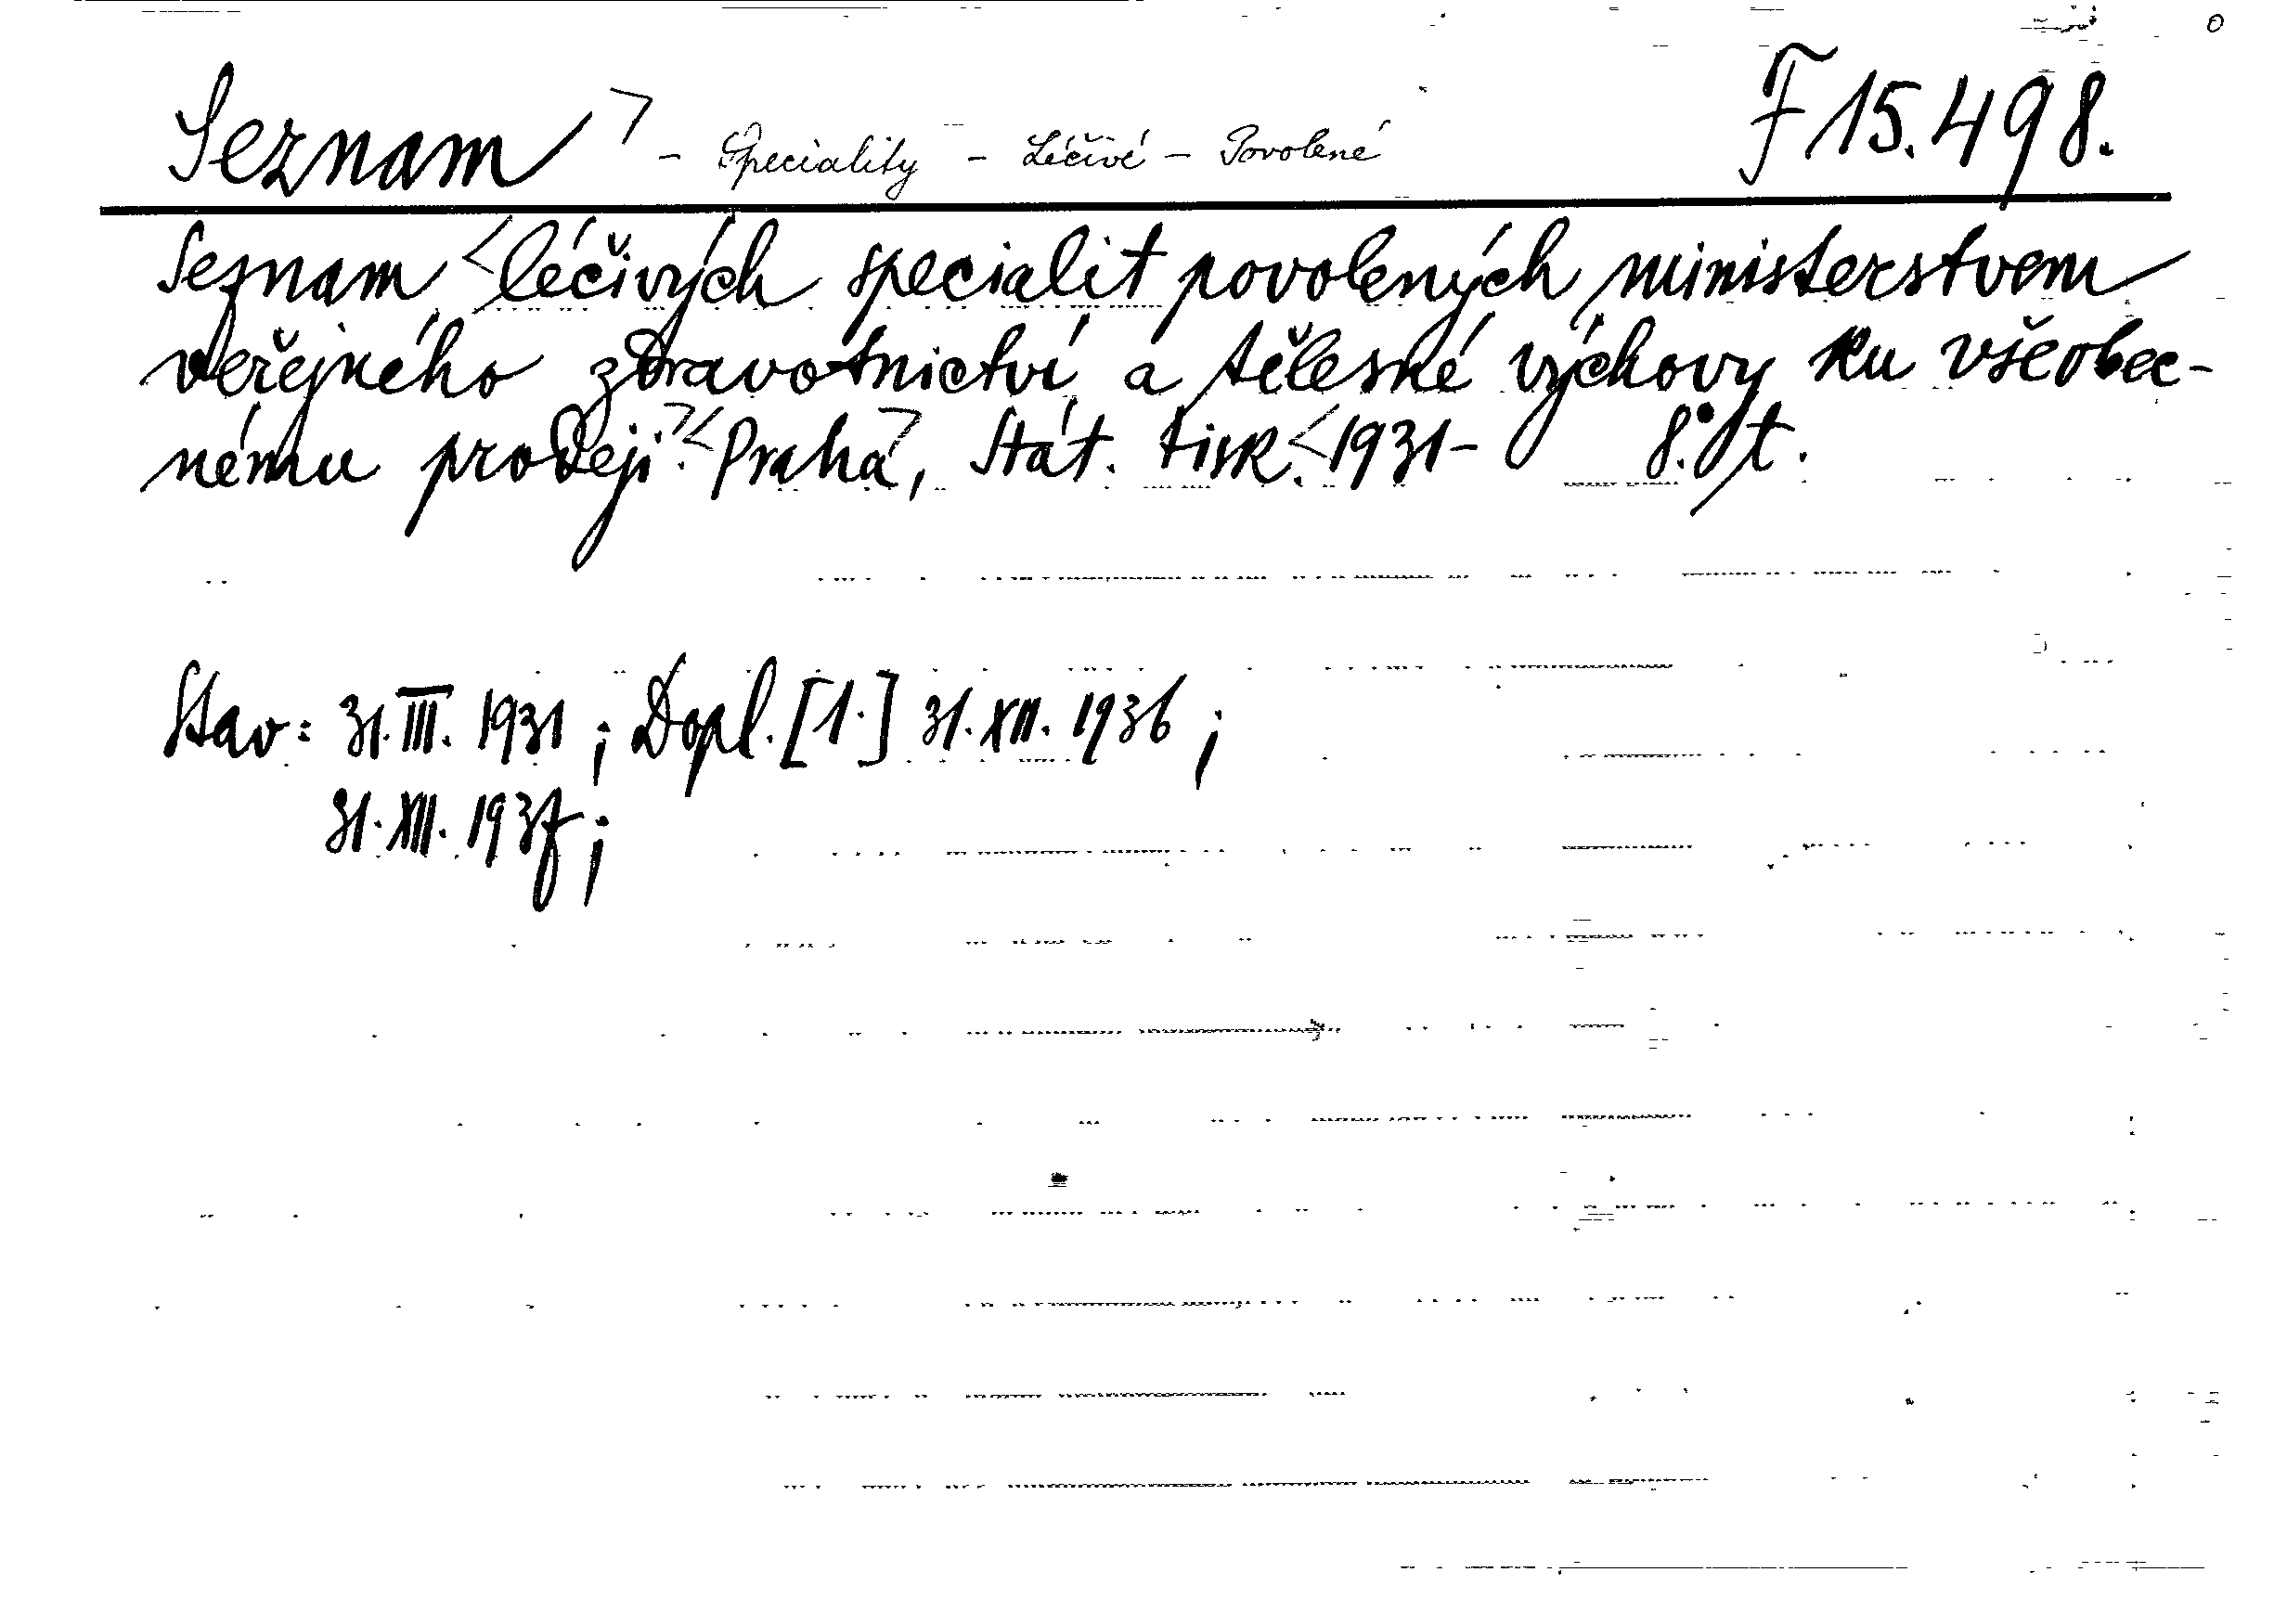 Seznam - Speciality - Léčivé - Povolené F 15.498.
Seznam léčivých specialit povolených ministerstvem
veřejného zdravotnictví a tělesné výchovy ku všeobec-
nému prodeji. Praha, Stát. tisk. 1931- 8.° t.
Stav: 31.III. 1931 ; Dopl. [1.] 31.XII. 1936 ;
31.XII. 1937 ;